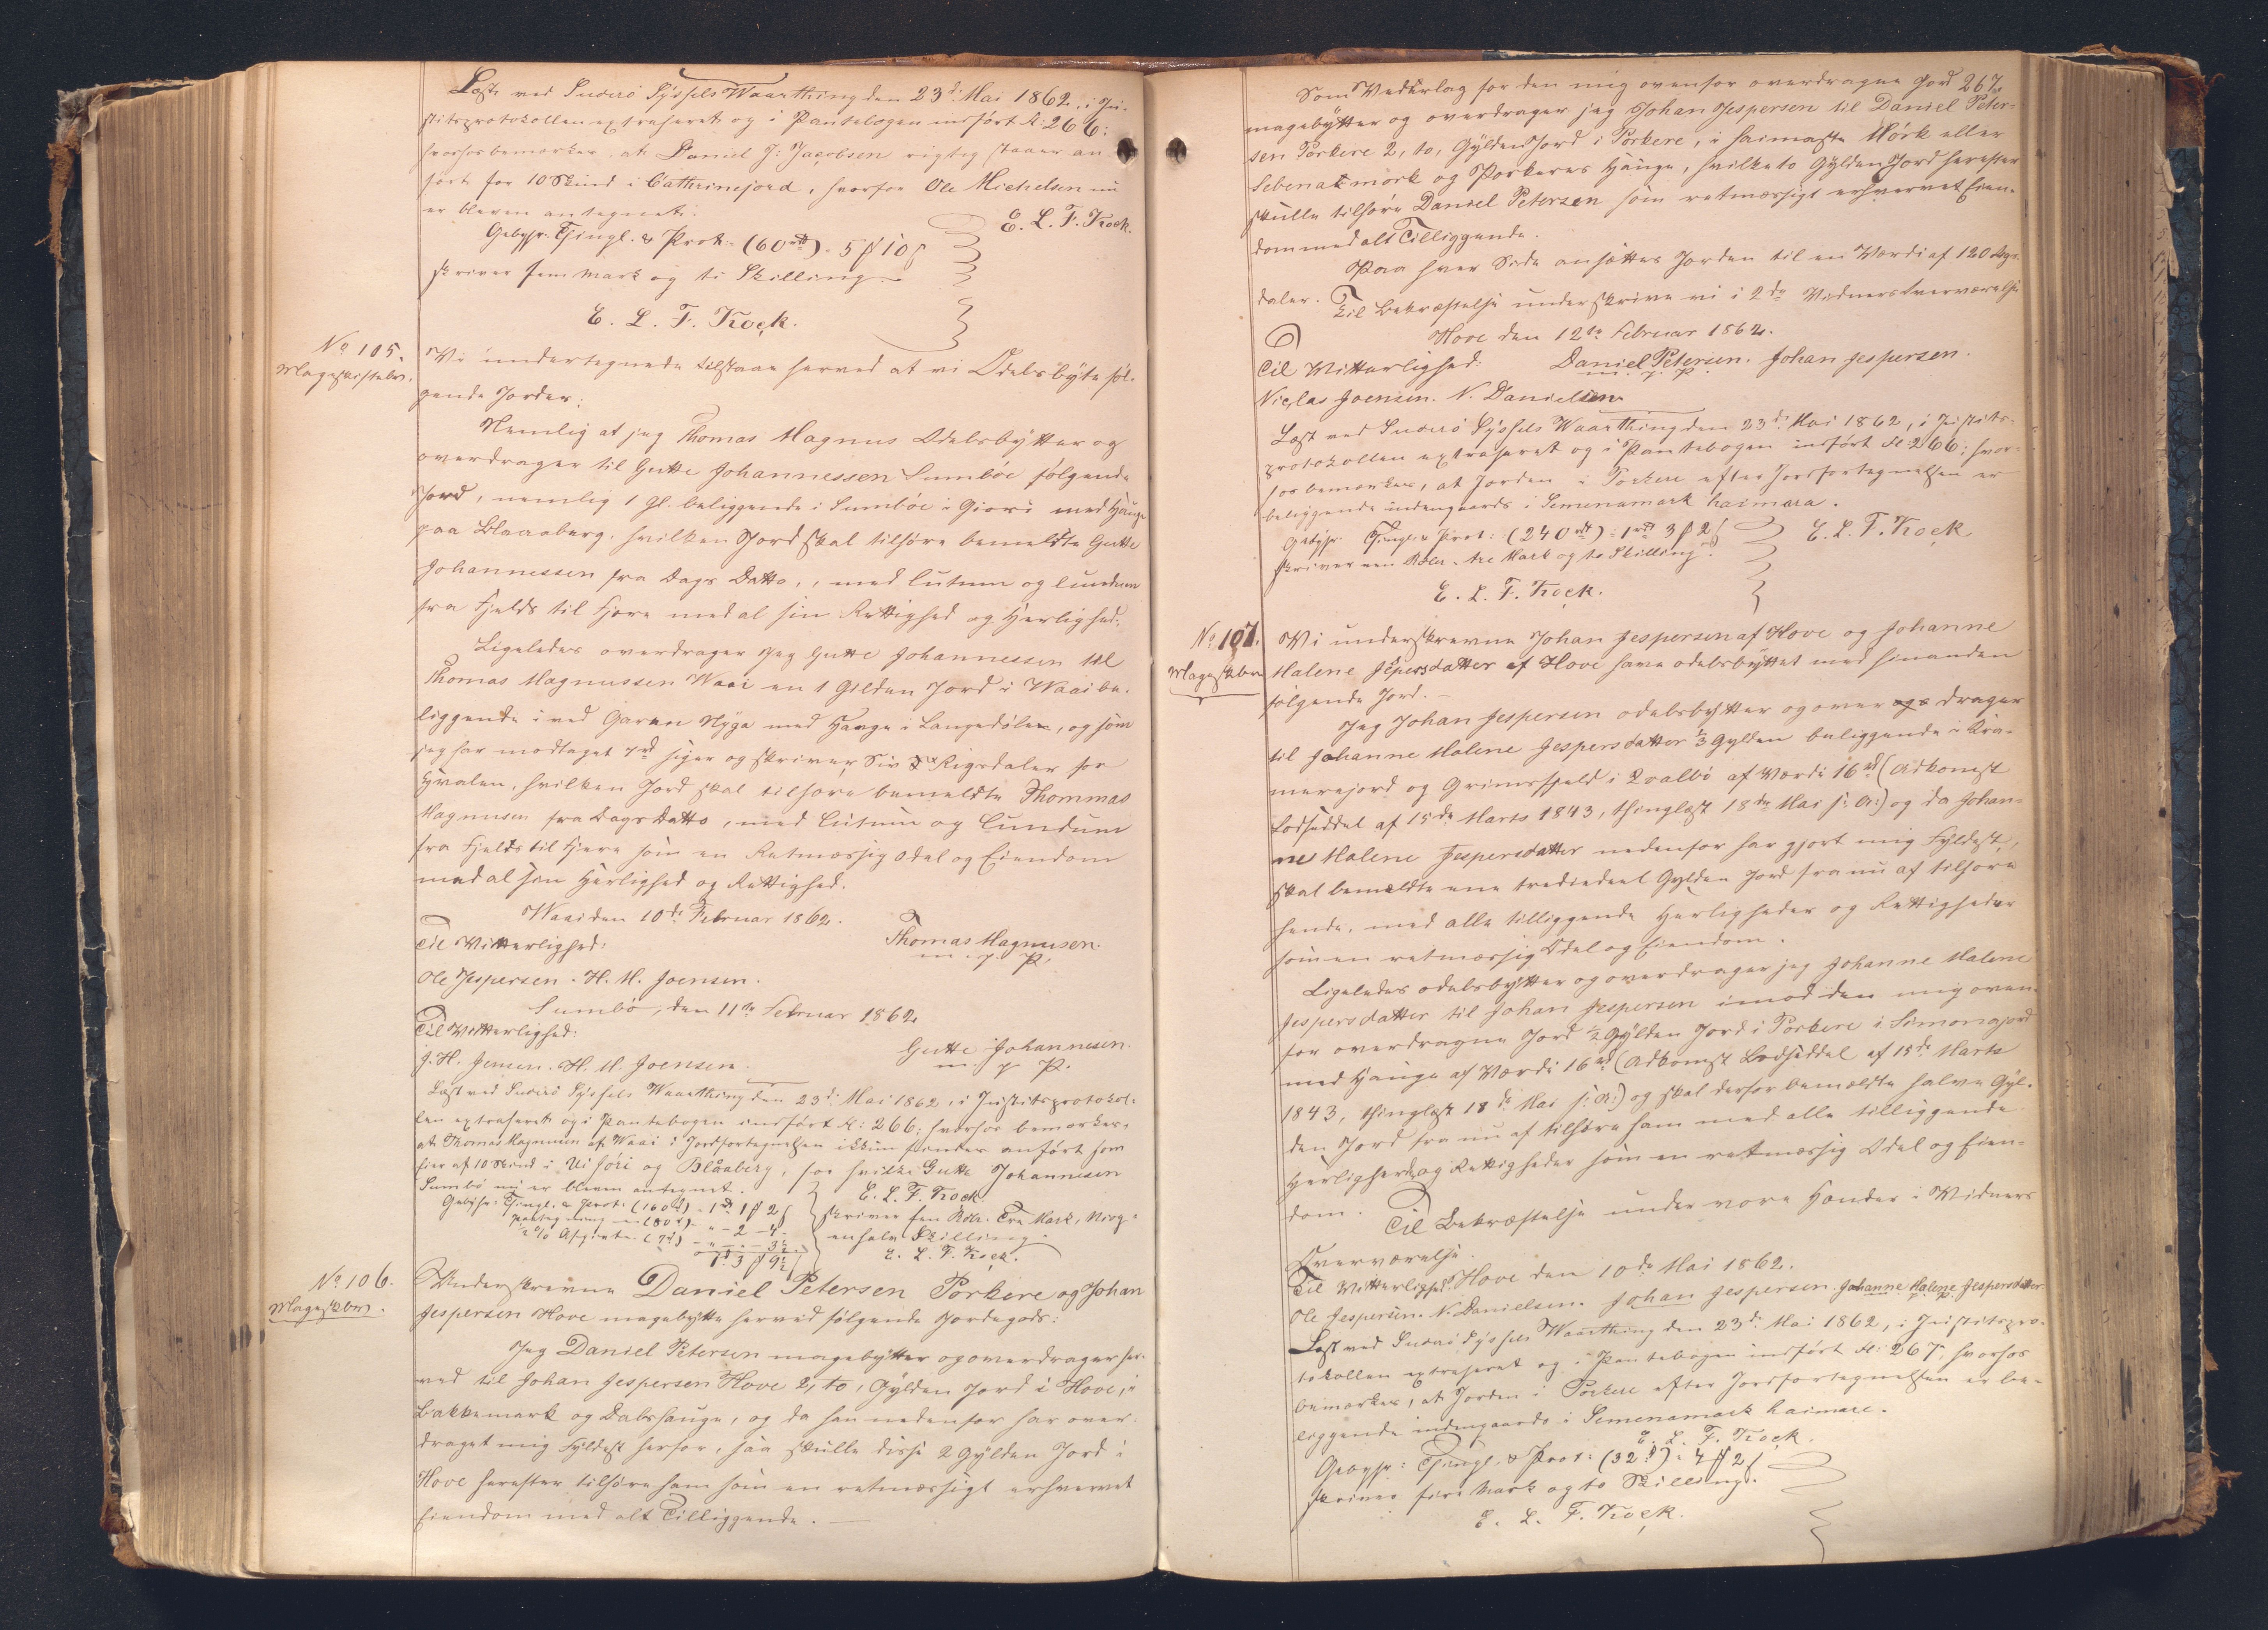 Læst ved Suderö Syssels Waarthing den 23d. Mai 1862, i Ju-
stitsprotokollen extraheret og i Pantebogen indført fol: 266;
hvorhos bemærkes, at Daniel J: Jacobsen rigtig staaer an-
ført for 10 Skind i Cathrinejord, hvorfor Ole Michelsen nu
er bleven antegnet.
E. L. F. Kock.
Gebyhr. Thingl. & Prot. (60 rd) = 5 ß 10 ſ
skriver fem Mark og ti Skilling.
E. L. F. Kock.
No 105.
Mageskiftebr.
Vi undertegnede tilstaae herved at vi Odelsbytte føl-
gende Jorder:
Nemlig at jeg Thomas Magnus Odelsbytter og
overdrager til Gutte Johannessen Sumböe følgende
Jord, nemlig 1 Gl. beliggende i Sumböe i Giori med Hauge
paa Blaaberg, hvilken Jord skal tilhøre bemeldte Gutte
Johannessen fra Dags Datto, med lutum og lundum
fra Fjelds til Fjære med al sin Rettighed og Herlighed.
Ligeledes overdrager Jeg Gutte Johannessen til
Thomas Magnussen Waai en 1 Gilden Jord i Waai be-
liggende i ved Garen Nyga med Hauge i Langedølen, og som
jeg har modtaget 7 rd siger og skriver Siv Rigsdaler for
Hvalen, hvilken Jord skal tilhøre bemeldte Thommas
Magnusen fra Dags Datto, med Lutum og Lundum
fra Fjelds til Fjære som en Retmæssig Odel og Eiendom
med al sin Herlighed og Rettighed.
Waai den 10de Februar 1862.
Til Vitterlighed:
Thomas Magnusen.
m. p. P.
Ole Jespersen. H. M. Joensen.
Sumbö, den 11te Februar 1862
Til Vitterlighed:
Gutte Johannesen.
m. p. P.
J. H. Jensen. H. M. Joensen.
Læst ved Suderö Syssels Waarthing den 23d. Mai 1862, i Justitsprotokol-
len extraheret og i Pantebogen indført fol: 266; hvorhos bemærkes,
at Thomas Magnusen af Waai i Jordfortegnelsen ikkun findes anført som
Eier af 10 Skind i Uti Jóri og Blåaberg, for hvilke Gutte Johannesen
Sumbö nu er bleven antegnet.
E. L. F. Kock
Gebyhr: Thingl. & Prot: (160 rd) = 1 rd 1 ß 2 ſ
Pantegning (80 rd) - " - 2 - 4 -
½ % Afgivt (7 rd) - " - " - 3½
1 rd 3 ß 9½ ſ
skriver een Rdlr. Tre Mark, Niog-
enhalv Skilling.
E. L. F. Kock.
No 106.
Mageskbr.
Underskrevne Daniel Petersen Porkere og Johan
Jespersen Hove magebytte herved følgende Jordegods:
Jeg Daniel Petersen magebytter og overdrager her-
ved til Johan Jespersen Hove 2, to, Gylden Jord i Hove, i
Bakkemark og Dalshauge, og da han nedenfor har over-
draget mig Fyldest herfor, saa skulle disse 2 Gylden Jord i
Hove herefter tilhøre ham som en retmæssigt erhvervet
Eiendom med alt Tilliggende.
267.
Som Vederlag for den mig ovenfor overdragne Jord
magebytter og overdrager jeg Johan Jespersen til Daniel Peter-
sen Porkere 2, to, Gylden Jord i Porkere, i haimasta Mörk eller
Sebenatmörk og Porkeres Hauge, hvilke to Gylden Jord herefter
skulle tilhøre Daniel Petersen som retmæssigt erhvervet Eien-
dom med alt Tilliggende.
Paa hver Side ansættes Jorden til en Værdi af 120 Rigs-
daler. Til Bekræftelse underskrive vi i 2de Vidners Overværelse
Hove den 12te Februar 1862.
Til Vitterlighed:
Daniel Petersen. Johan Jespersen.
m. p. P.
Niclas Joensen. N. Danielsen
Læst ved Suderö Syssels Waarthing den 23d. Mai 1862, i Justits-
protokollen extraheret og i Pantebogen indført fol: 266; hvor-
hos bemærkes, at Jorden i Porkere efter Jordfortegnelsen er
beliggende indengaards i Semenamark haimara.
Gebyhr. Thingl. & Prot: (240 rd) = 1 rd 3 ß 2 ſ
skriver een Rdlr. tre Mark og to Skilling.
E. L. F. Kock
E. L. F. Kock.
No 107.
Mageskbr
Vi underskrevne Johan Jespersen af Hove og Johanne
Malene Jespersdatter af Hove have odelsbyttet med hinanden
følgende Jord.
Jeg Johan Jespersen odelsbytter og over og drager
til Johanne Malene Jespersdatter ⅓ Gylden beliggende i Krá-
merejord og Grimsfjeld i Qvalbö af Værdi 16 rd (Adkomst
Lodseddel af 15de Marts 1843, thinglæst 18de Mai s: A:) og da Johan-
ne Malene Jespersdatter nedenfor har gjort mig Fyldest,
skal bemældte ene trediedeel Gylden Jord fra nu af tilhøre
hende, med alle tilliggende Herligheder og Rettigheder
som en retmæssig Odel og Eiendom.
Ligeledes odelsbytter og overdrager jeg Johanne Malene
Jespersdatter til Johan Jespersen imod den mig oven-
for overdragne Jord ½ Gylden Jord i Porkere i Simonajord
med Hauge af Værdi 16 rd (Adkomst Lodseddel af 15de Marts
1843, thinglæst 18de Mai s: A:) og skal derfor bemældte halve Gyl-
den Jord fra nu af tilhøre ham med alle tilliggende
Herligheder og Rettigheder som en retmæssig Odel og Eien-
dom.
Til Bekræftelse under vore Hænder i Vidners
Overværelse.
Til Vitterlighed. Hove den 10de Mai 1862.
Ole Jespersen. N. Danielsen. Johan Jespersen. Johanne Malene Jespersdatter
Læst ved Suderö Syssels Waarthing den 23d. Mai 1862, i Justitspro-
tokollen extraheret og i Pantebogen indført fol: 267, hvorhos
bemærkes, at Jorden i Porkere efter Jordfortegnelsen er be-
liggende indengaards i Semenamark haimare.
E. L. F. Kock.
Gebyhr: Thingl. & Prot: (32 rd) = 4 ß 2 ſ
skriver fire Mark og to Skilling.
E. L. F. Kock.